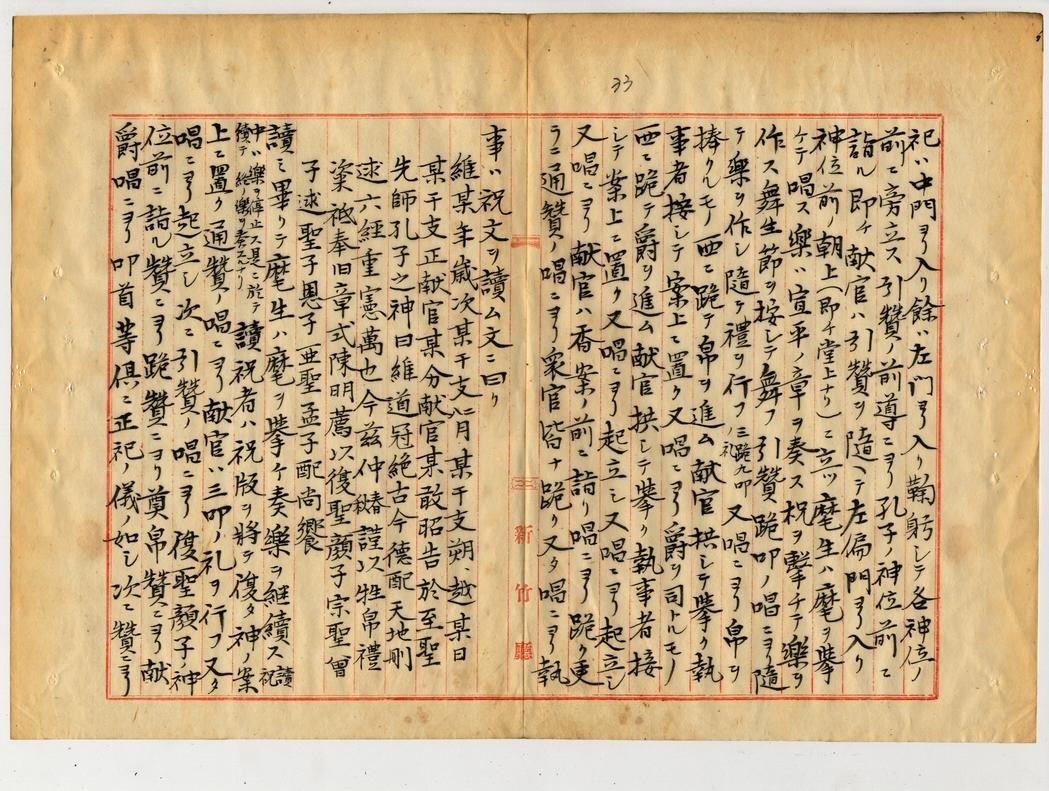 33
祀ハ中門ヨリ入リ餘ハ左門ヨリ入リ鞠躬シテ各神位ノ
前ニ旁立ス引贊ノ前導ニヨリ孔子ノ神位前ニ
詣ル即チ献官ハ引贊ヲ隨ヘテ左偏門ヨリ入リ
神位前ノ朝上(即チ堂上ナリ)ニ立ツ麾生ハ麾ヲ擧
ケテ唱ス樂ハ宣平ノ章ヲ奏ス柷ヲ擊チテ樂ヲ
作ス舞生節ヲ按シテ舞フ引贊跪叩ノ唱ニヨリ隨
テ樂ヲ作シ隨テ禮ヲ行フ(三跪九叩ノ礼)又唱ニヨリ帛ヲ
捧クルモノ西ニ跪テ帛ヲ進ム献官拱シテ擧ク執
事者接シテ案上ニ置ク又唱ニヨリ爵ヲ司トルモノ
西ニ跪テ爵ヲ進ム献官拱シテ擧ク執事者接
シテ案上ニ置ク又唱ニヨリ起立シ又唱ニヨリ起立シ
又唱ニヨリ献官ハ香案ノ前ニ詣リ唱ニヨリ跪ク更
ラニ通贊ノ唱ニヨリ衆官皆ナ跪ク又タ唱ニヨリ執
新竹廳
事ハ祝文ヲ讀ム文ニ曰ク
維某年歲次某干支幾月某干支朔、越某日
某干支正献官某分献官某敢昭告於至聖
先師孔子之神曰維道冠絶古今德配天地刪
述六經垂憲萬世今茲仲春秋謹以牲帛禮
粢祗奉旧章式陳明薦以復聖顏子宗聖曾
子述聖子思子亞聖孟子配尚饗
讀ミ畢リテ麾生ハ麾ヲ擧ケ奏樂ヲ継續ス讀祝
中ハ樂ヲ停止ス是ニ於テ
續テ樂ヲ奏スナリ讀祝者ハ祝版ヲ將テ復タ神ノ案
上ニ置ク通贊ノ唱ニヨリ献官ハ三叩ノ礼ヲ行フ又タ
唱ニヨリ起立シ次ニ引贊ノ唱ニヨリ復聖顏子ノ神
位前ニ詣ル贊ニヨリ跪贊ニヨリ奠帛贊ニヨリ献
爵唱ニヨリ叩首等俱ニ正祀ノ儀ノ如シ次ニ贊ニヨリ